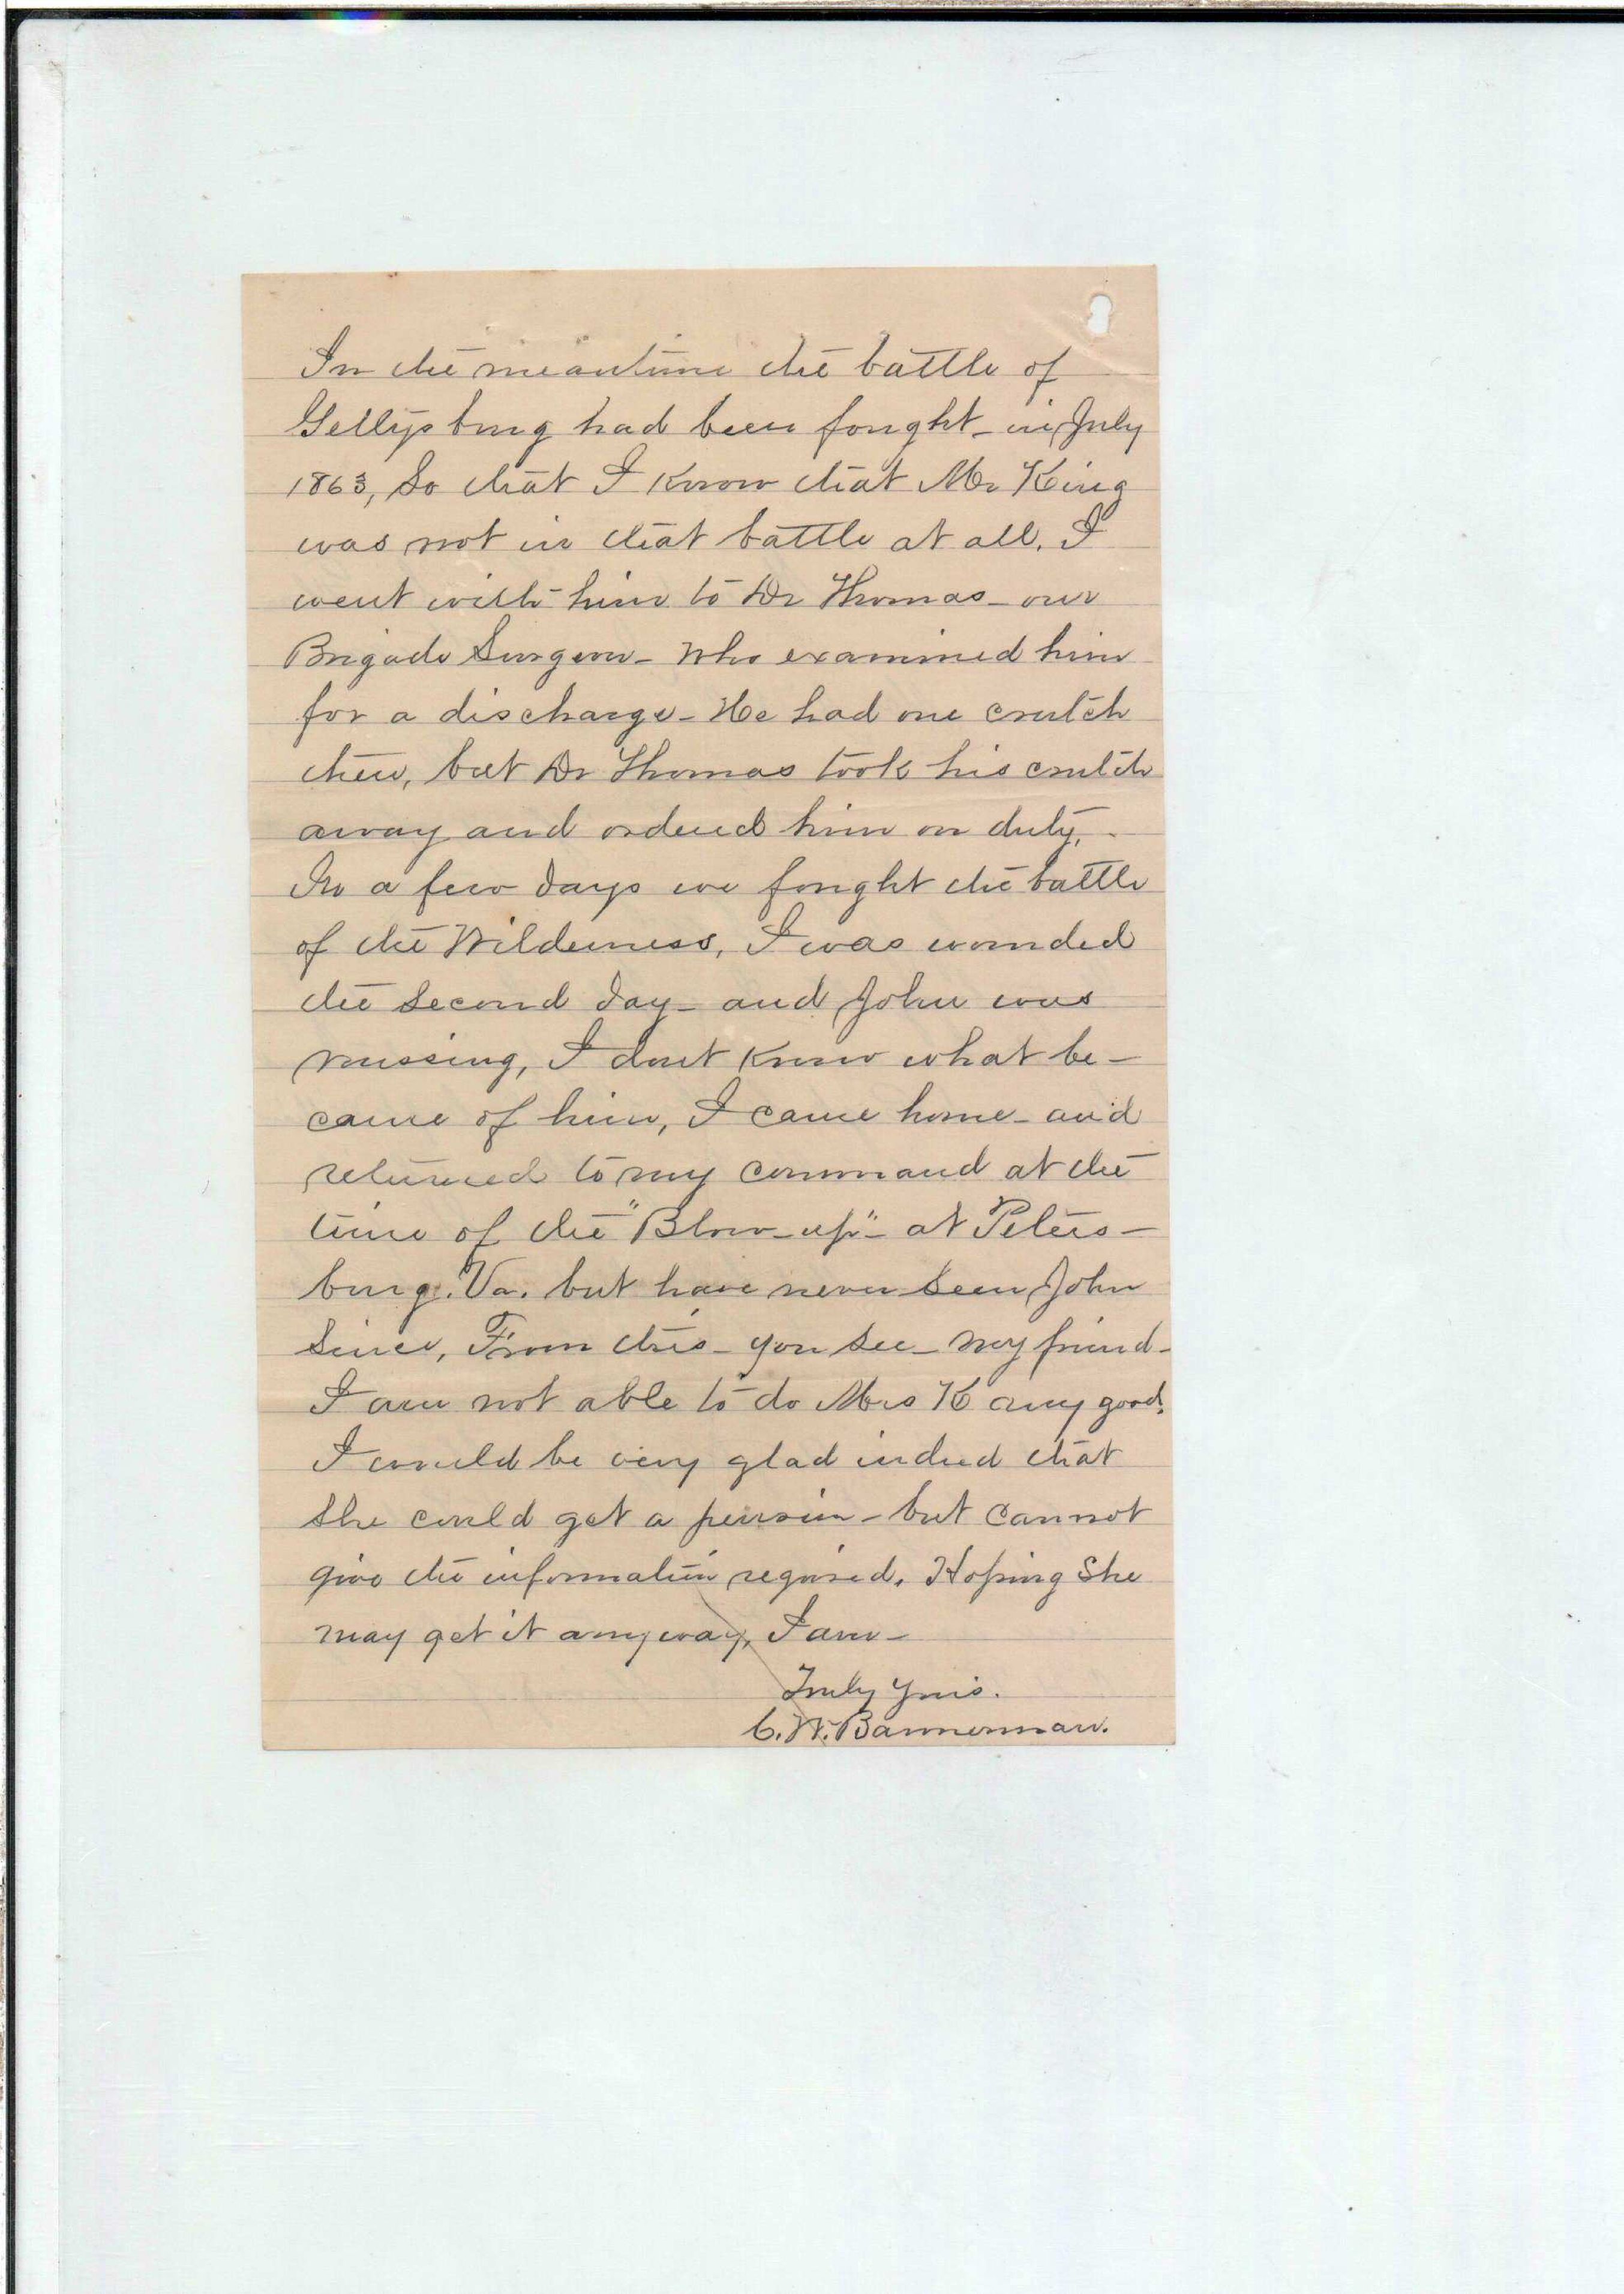 In the meantime the battle of
Gettysburg had been fought - in July
1863, So that I know that Mr King
was not in that battle at all. I
went with him to Dr Thomas - our
Brigade Surgeon - Who examined him
for a discharge - He had one crutch
then, but Dr Thomas took his crutch
away and ordered him on duty. -
In a few days we fought the battle
of the Wilderness, I was wounded
the second day - and John was
missing, I dont know what be-
came of him, I came home - and
returned to my command at the
time of the "Blow-up" - at Peters-
burg. Va. but have never seen John
Since, From this - you see - my friend -
I am not able to do Mrs K any good.
I would be very glad indeed that
she could get a pension - but cannot
give the information required. Hoping She
may get it anyway, I am -
Truly Yours.
C. W. Bannerman.